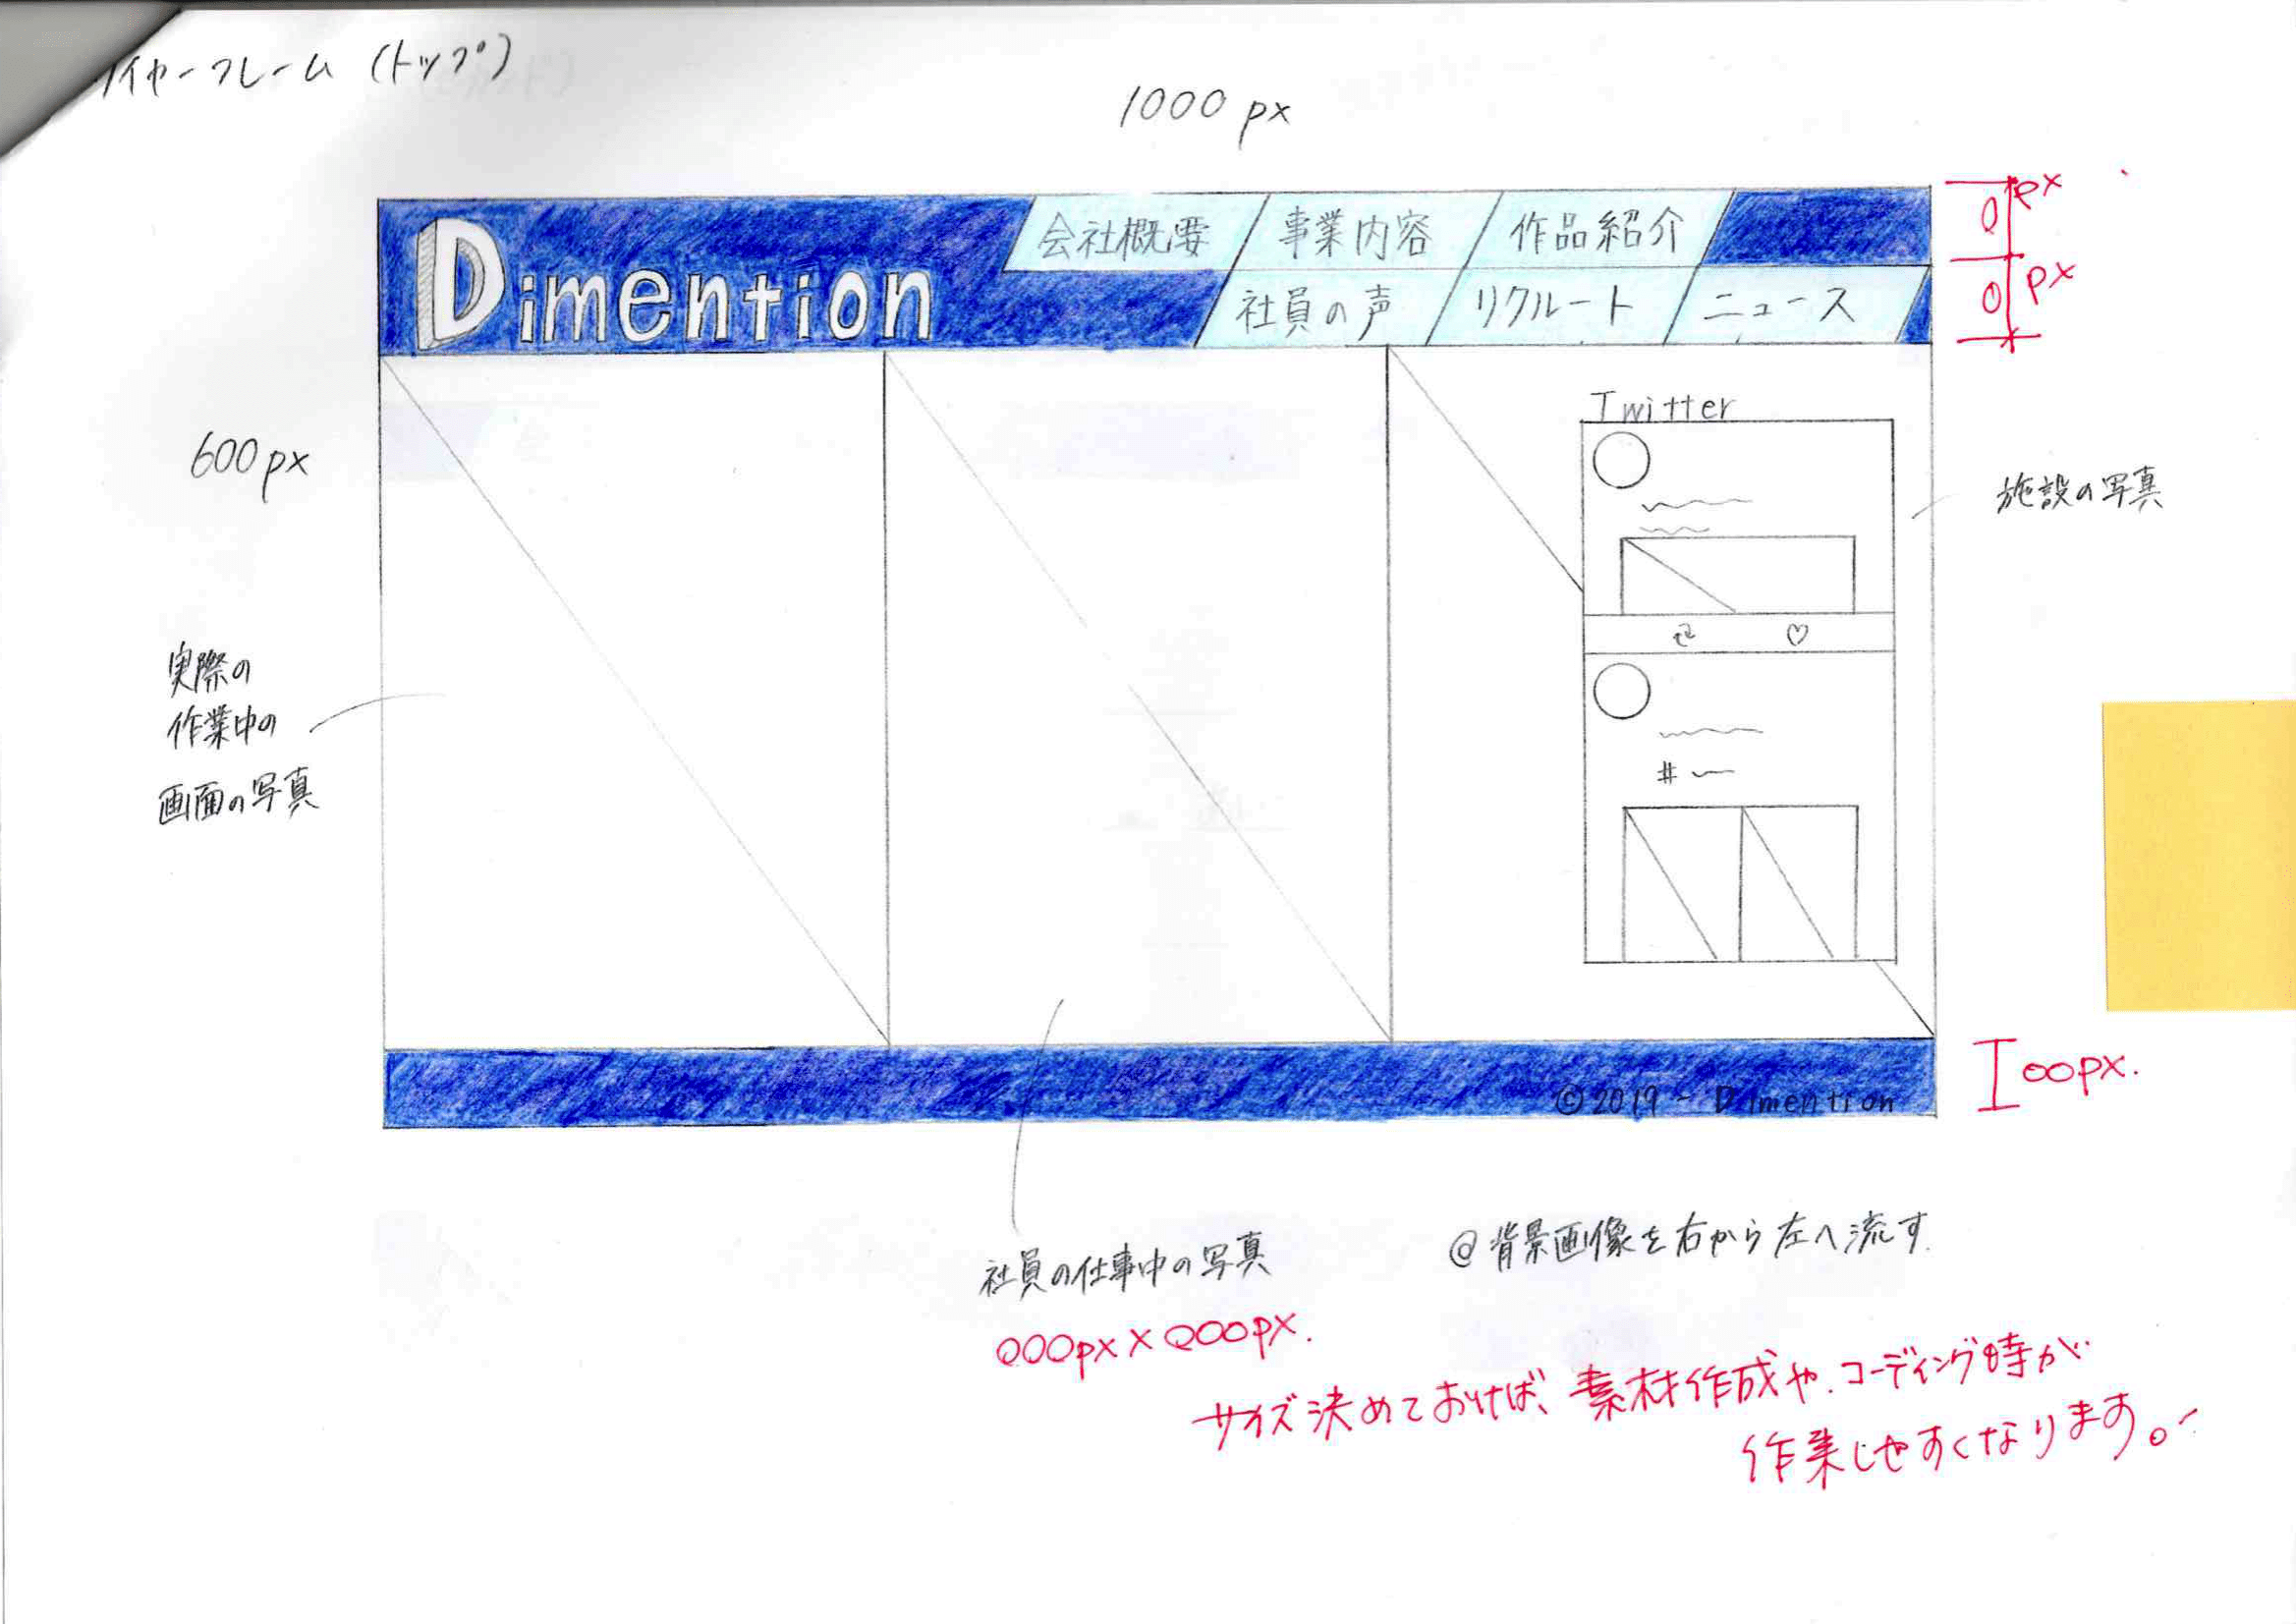 イヤーフレーム (トップ)
1000 px
Dimention
会社概要
事業内容
作品紹介
社員の声
リクルート
ニュース
0 px
0 px
600px
Twitter
施設の写真
実際の
作業中の
画面の写真
#
©2019 - Dimention
00px.
社員の仕事中の写真
000px×000px.
@背景画像を右から左へ流す
サイズ決めておけば、素材作成や、コーディング時が
作業しやすくなります。